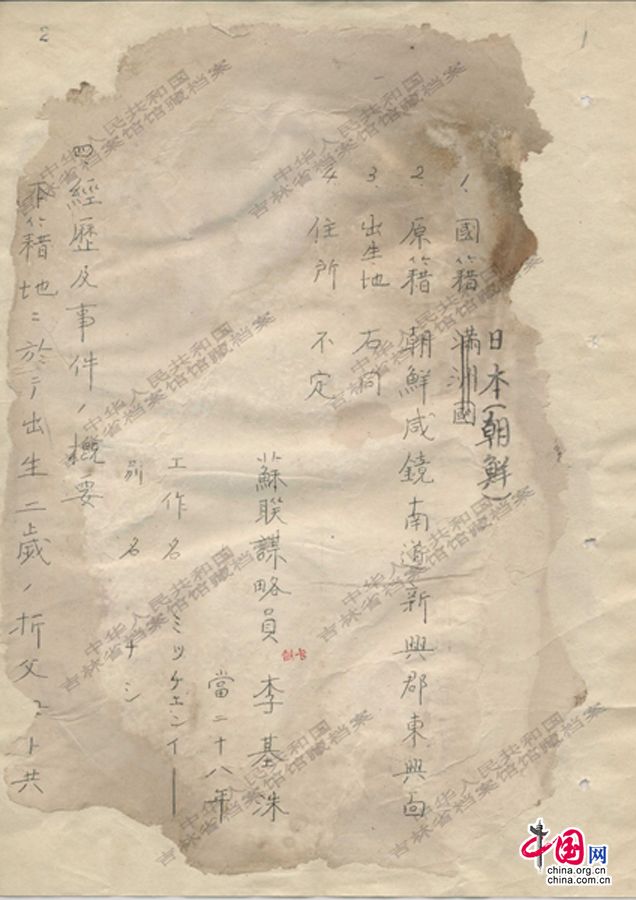 1
1. 國籍 滿洲國
日本(朝鮮)
2. 原籍 朝鮮咸鏡南道新興郡東興面
3. 出生地 右同
4. 住所 不定
蘇联謀略員 李基洙
當二十八年
工作名 ミッケエンイ
別名 ナシ
2
四、經歷及事件ノ概要
籍地ニ於テ出生二歲ノ折父ト共
中华人民共和国
吉林省档案馆馆藏档案
中国网
china.org.cn
china.com.cn